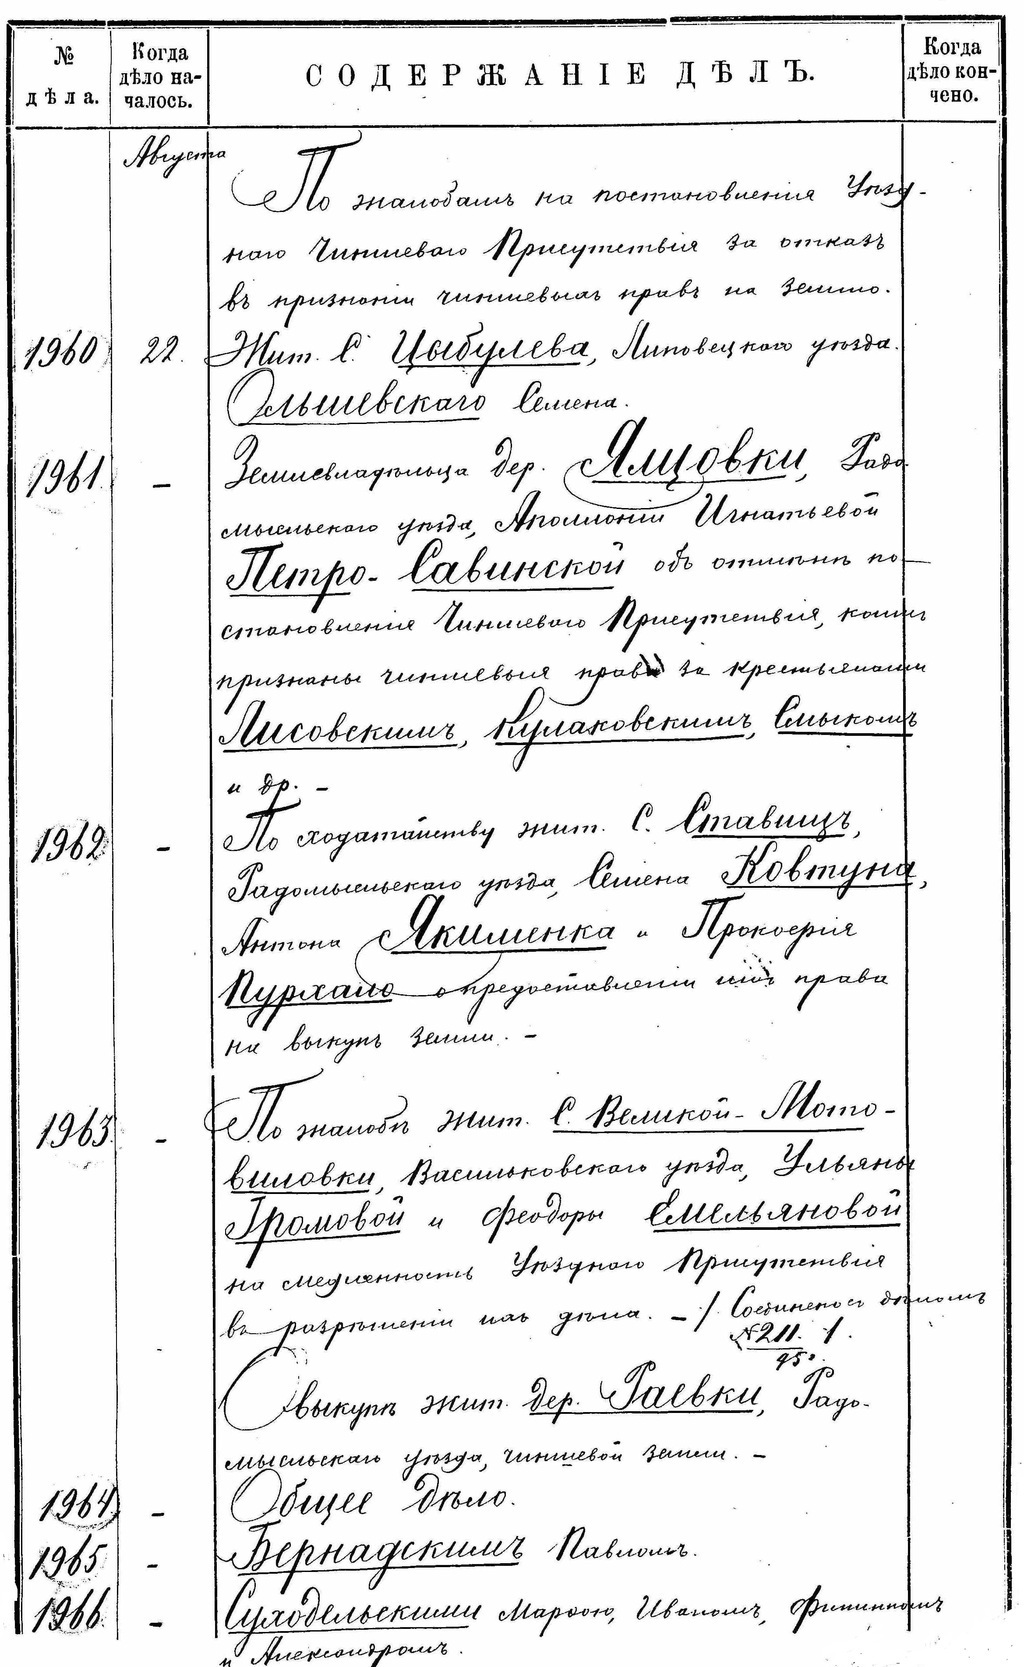 № дѣла.
Когда дѣло началось.
СОДЕРЖАНІЕ ДѢЛЪ.
Когда дѣло кончено.
Августа
По жалобамъ на постановленія Уѣзд-
наго Чиншеваго Присутствія за отказъ
въ признаніи чиншевыхъ правъ на землю.
1960 22. Жит. С. Цыбулева, Липовецкаго уѣзда.
Ольшевскаго Семена.
1961. – Землевладѣльца дер. Ямцовки, Радо
мысльскаго уѣзда, Аполлоніи Игнатьевой
Петро-Савинской объ отмѣнѣ по-
становленія Чиншеваго Присутствія, коимъ
признаны чиншевыя права за крестьянами
Лисовскимъ, Кулаковскимъ, Смыкомъ
и др. –
1962 – По ходатайству жит. С. Ставищъ,
Радомысльскаго уѣзда, Семена Ковтуна,
Антона Якименка и Прокофія
Пурхало о предоставленіи имъ права
на выкупъ земли. –
1963. – По жалобѣ жит. С. Великой-Мото-
виловки, Васильковскаго уѣзда, Ульяны
Громовой и Феодоры Емельяновой
на медленность Уѣзднаго Присутствія
въ разрѣшеніи ихъ дѣла. – /. Соединено съ дѣломъ
№ 211. /.
95
О выкупѣ жит. дер. Раевки, Радо-
мысльскаго уѣзда, чиншевой земли. –
1964 – Общее дѣло.
1965 – Бернадскимъ Павломъ.
1966. – Суходельскими Марфою, Иваномъ, Филиппомъ
и Александромъ.